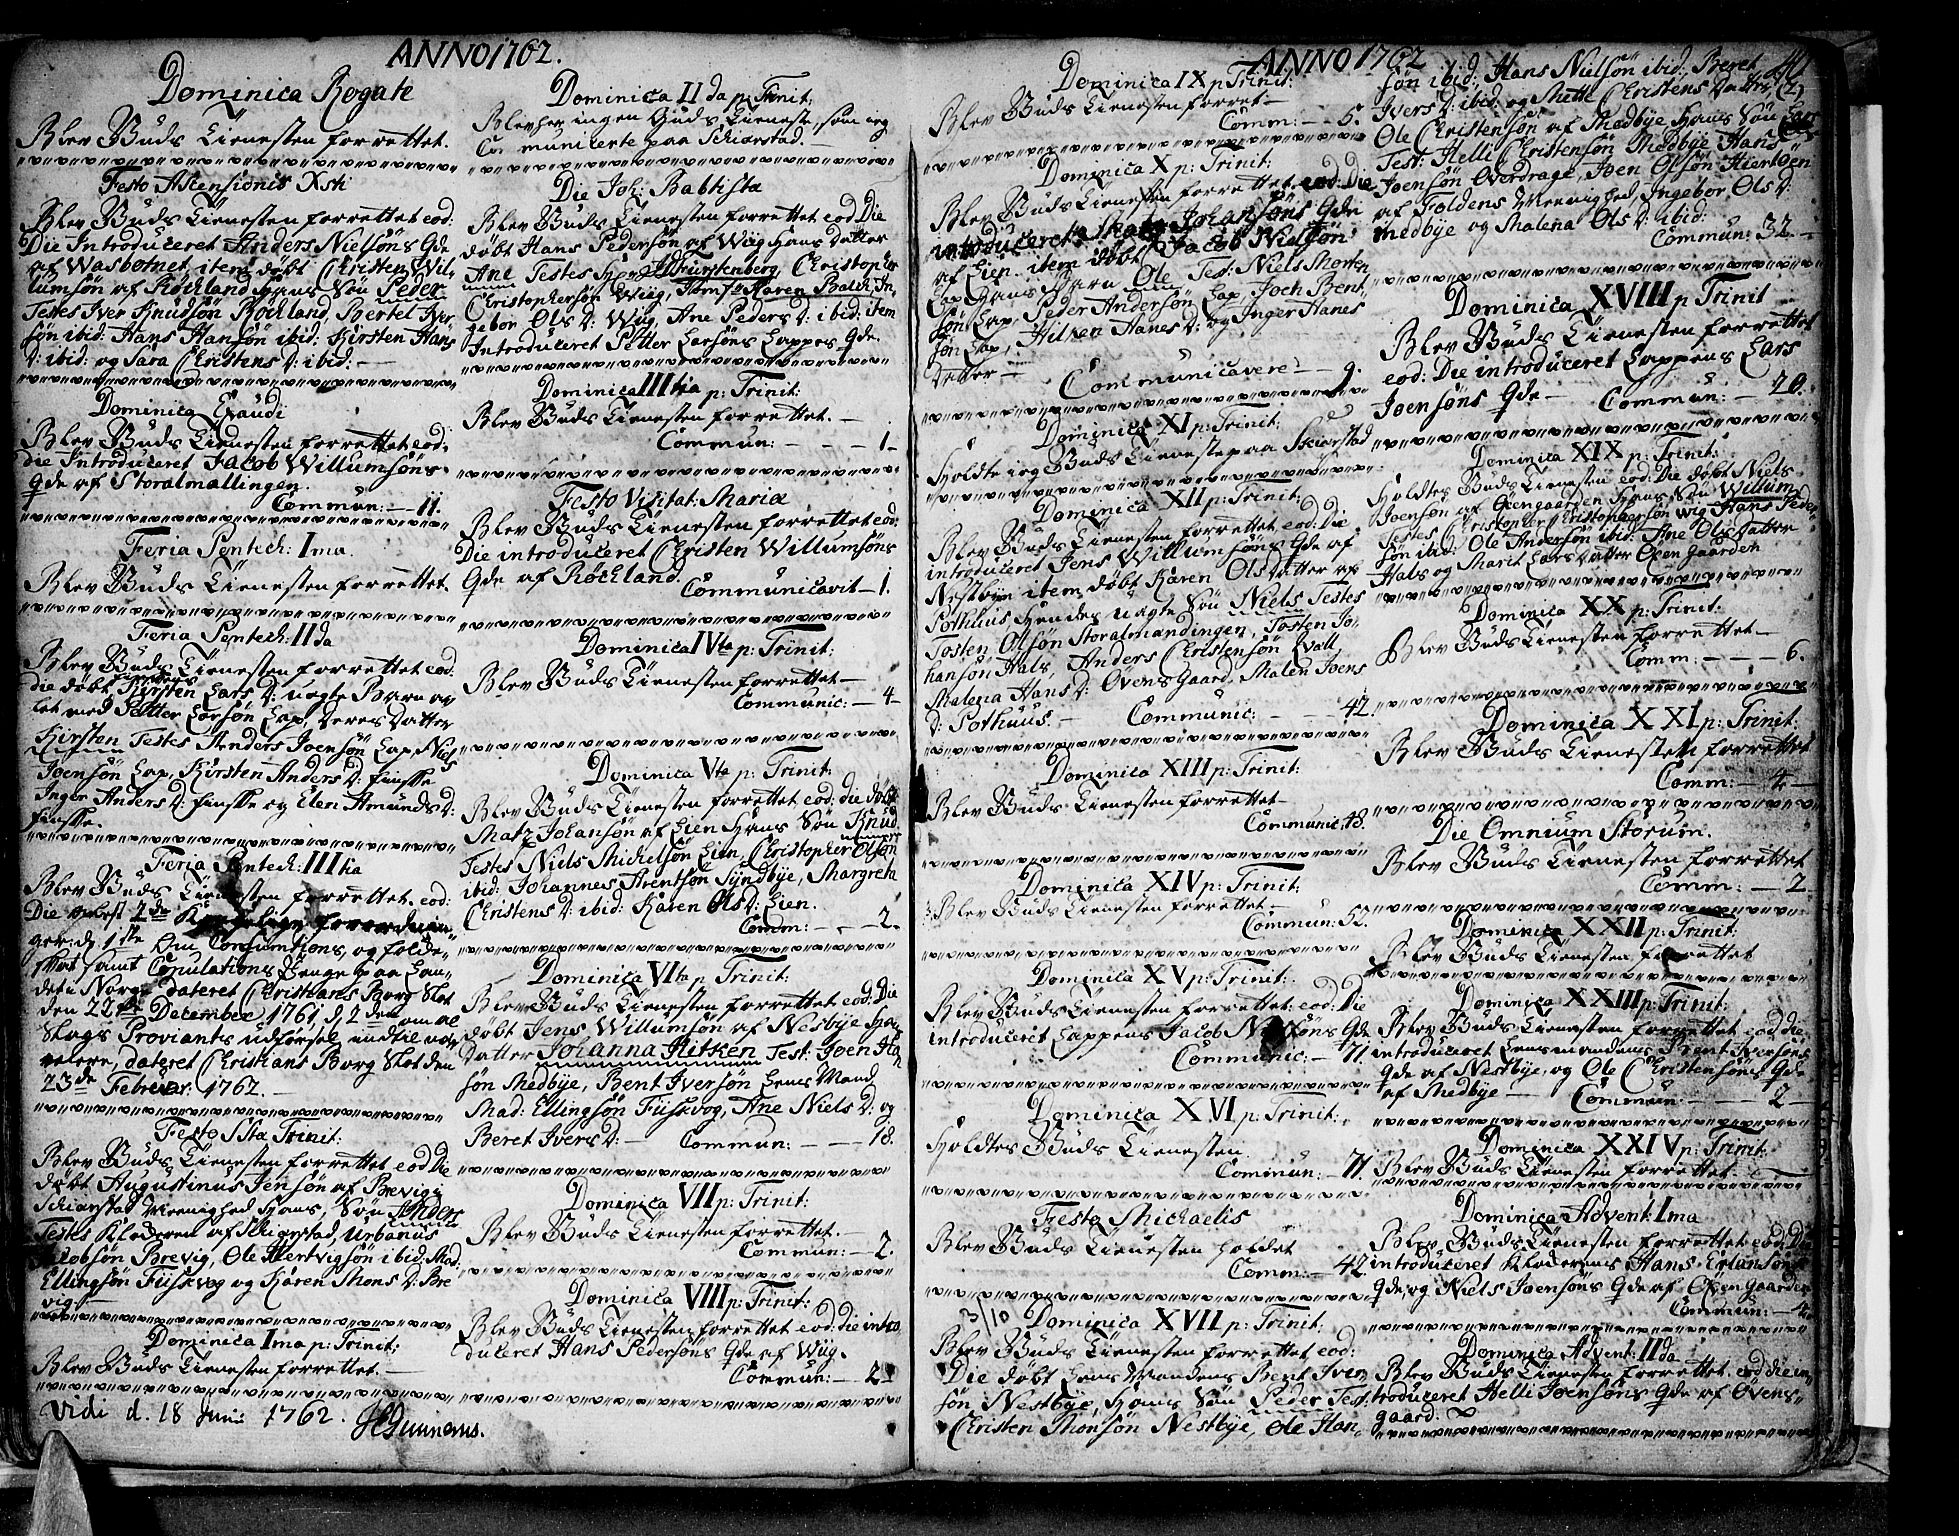 ANNO 1762.
Dominica Rogate
Blev Guds Tienesten forrettet.
Festo Ascensionis Xsti
Blev Guds Tienesten forrettet eod:
Die Introduceret Anders Nielsöns Qde
af Wasbotnet, item döbt Christen Wil-
lumsön af Röckland hans Sön Peder
Testes Iver Knudsön Röcland, Bertel Iver
sön ibid: Hans Hansön ibid: Kirsten Hans
D: ibid: og Sara Christens D: ibid: —
Dominica Exaudi
Blev Guds Tienesten forrettet eod:
die Introduceret Jacob Willumsöns
Qde af Storalmallingen.
Commun: — 11.
Feria Pentech: I ma.
Blev Guds Tienesten forrettet.
Feria Pentech: II da
Blev Guds Tienesten forrettet eod:
die döbt Kirsten Lars D: uægte Barn av
let med Petter Larsön Lap, Deres Datter
Kirsten Testes Anders Joensön Lap, Niels
Joensön Lap, Kirsten Anders D: finske
Inger Anders D: finske og Elen Amunds D:
finske.
Feria Pentech: III tia
Blev Guds Tienesten forrettet. eod:
Die oplæst 2de Kongelige forordnin-
ger, d. 1ste Om Consumtions, og folde-
skat samt Copulations Penge paa Lan-
det i Norge dateret Christians Borg Slot
den 22de December 1761, d. 2den om al
Slags Proviants udförsel indtil vi-
velere, dateret Christians Borg Slot den
23de Februar: 1762.
Festo SSta Trinit:
Blev Guds Tienesten forrettet eod Die
döbt Augustinus Jensön af Brevigi
Schierstad Meenighed hans, Sön Anders
Testes Klockeren af Schierstad, Urbanus
Jacobsön Brevig, Ole Hertvigsön ibid: Mad:
Ellingsön Fiiskvog og Karen Mons D: Bre
vig.
Dominica I ma p: Trinit:
Blev Guds Tienesten forrettet. —
Vidi d. 18 Junii 1762.
Dominica II da p: Trinit:
Blev her ingen Guds Tieneste, som ieg
Communicerte paa Schierstad. —
Die Joh: Baptista
Blev Guds Tienesten forrettet eod Die
döbt Hans Pedersön af Wiig hans datter
Ane Testes Hr Fürstenberg, Christopher
Christophersön Wiig, Jomfr Karen Balch, In-
gebor Ols D: Wiig, Ane Peders D: ibid: item
Introduceret Petter Larsöns Lappes Qde.
Dominica III tia p: Trinit:
Blev Guds Tienesten forrettet. —
Commun: — — — 1.
Festo Visitat: Mariæ
Blev Guds Tienesten forrettet eod:
Die introduceret Christen Willumsöns
Qde af Röchland.
Communicavit — 1.
Dominica IV ta p: Trinit:
Blev Guds Tienesten forrettet —
Communic: — 4
Dominica V ta p: Trinit:
Blev Guds Tienesten forrettet eod: die döbt
Matz Johansön af Lien Hans Sön Knud
Testes Niels Michelsön Lien, Christopher Olsön
ibid: Johannes Arentsön Syndbye, Margreta
Christens D: ibid: Karen Ols D: Lien.
Comm: — — 2.
Dominica VI ta p Trinit:
Blev Guds Tienesten forrettet eod: Die
döbt Jens Willumsön af Nesbÿe hans
Datter Johanna Hitken Test: Joen Han
sön Medbÿe, Bent Iversön Lens Mand
Mad: Ellingsön Fiiskvog, Ane Niels D: og
Beret Ivers D: — Commun: — — 18.
Dominica VII p: Trinit:
Blev Guds Tienesten forrettet.
Commun: — 2.
Dominica VIII p: Trinit:
Blev Guds Tienesten forrettet eod: die intro
duceret Hans Pedersöns Qde af Wiig.
Commun: — 2
ANNO 1762
Dominica IX p Trinit:
Blev Guds Tienesten forret —
Comm: — 5.
Dominica X p: Trinit:
Blev Guds Tienesten forrettet eod: Die
introduceret Matz Johansöns Qde
af Lien. item döbt Jacob Nielsön
Lap Hans Barn Ole Test: Niels Morten
sön Lap, Peder Andersön Lap, Joch Bent,
sön Lap, Hilken Hanes D: og Inger Hanes
Datter —
Communicavere — 9.
Dominica XI p: Trinit:
Holdte ieg Guds Tieneste paa Skierstad
Dominica XII p: Trinit:
Blev Guds Tienesten forrettet eod: Die
introduceret Jens Willumsöns Qde af
Nestbÿe item döbt Karen Olsdatter af
Pothuus Hendes uægte Sön Niels Testes
Tosten Olsön Storalmandingen, Tosten Jo-
hansön Hals, Anders Christensön Wall
Malena Hans D: Övens Gaard, Malen Joens
D: Pothuus — Communic: — — 42.
Dominica XIII p: Trinit:
Blev Guds Tienesten forrettet —
Communic: 18.
Dominica XIV p: Trinit:
Blev Guds Tienesten forrettet —
Commun: 52.
Dominica XV p: Trinit:
Blev Guds Tienesten forrettet: eod: Die
introduceret Lappens Jacob Nielsöns Qde
Communic: — 71
Dominica XVI p: Trinit:
Holdtes Guds Tienesten.
Commun: — 71.
Festo Michaelis
Blev Guds Tienesten holdet
Comm: — 42.
3/10 Dominica XVII p: Trinit:
Blev Guds Tienesten forrettet eod:
Die döbt Lens Mandens Bent Iver
sön Nestbÿe, Hans Sön Peder Test:
Christen Monsön Nestbÿe, Ole Han-
ANNO 1762
40
(2)
sön ibid: Hans Nielsön ibid: Beret
Ivers D: ibid: og Mette Christens Datter,
Ole Christensön af Medbÿe Hans Sön Lars
Test: Helli Christensön Medbÿe Hans
Joensön Överdrage, Joen Olsön Hiertöen
af Foldens Meenighed, Ingebor Ols D:
Medbÿe og Malena Ols D: ibid:
Commun: 32.
Dominica XVIII p Trinit
Blev Guds Tienesten forrettet
eod: Die introduceret Lappens Lars
Joensöns Qde — Commun: — 20.
Dominica XIX p: Trinit:
Holdtes Guds Tienesten eod: Die döbt Niels
Joensön af Öxengaarden Hans Sön Willum
Testes Christopher Christophersön Wiig Hans Peder
sön ibid: Ole Andersön ibid: Ane Ols datter
Hals og Marit Lars datter Öxengaarden
Dominica XX p: Trinit:
Blev Guds Tienesten forrettet —
Comm: — — 6.
Dominica XXI p: Trinit:
Blev Guds Tienesten forrettet
Comm: — 4
Die Omnium Storum.
Blev Guds Tienesten forrettet
Comm: — 2
Dominica XXII p: Trinit:
Blev Guds Tienesten forrettet
Dominica XXIII p: Trinit:
Blev Guds Tienesten forrettet eod die
introduceret Lensmandens Bent Iversöns
Qde af Nestbÿe, og Ole Christensöns Qde
af Medbÿe — Commun: — — 2
Dominica XXIV p: Trinit:
Blev Guds Tienesten forrettet —
Dominica Advent: I ma
Blev Guds Tienesten forrettet eod: Die
introduceret Klockerens Hans Erlansöns
Qde, og Niels Joensöns Qde af Öxengaarden
Commun: — 4
Dominica Advent: II da
Blev Guds Tienesten forrettet. eod die in-
troduceret Helli Joensöns Qde af Övens-
gaard.